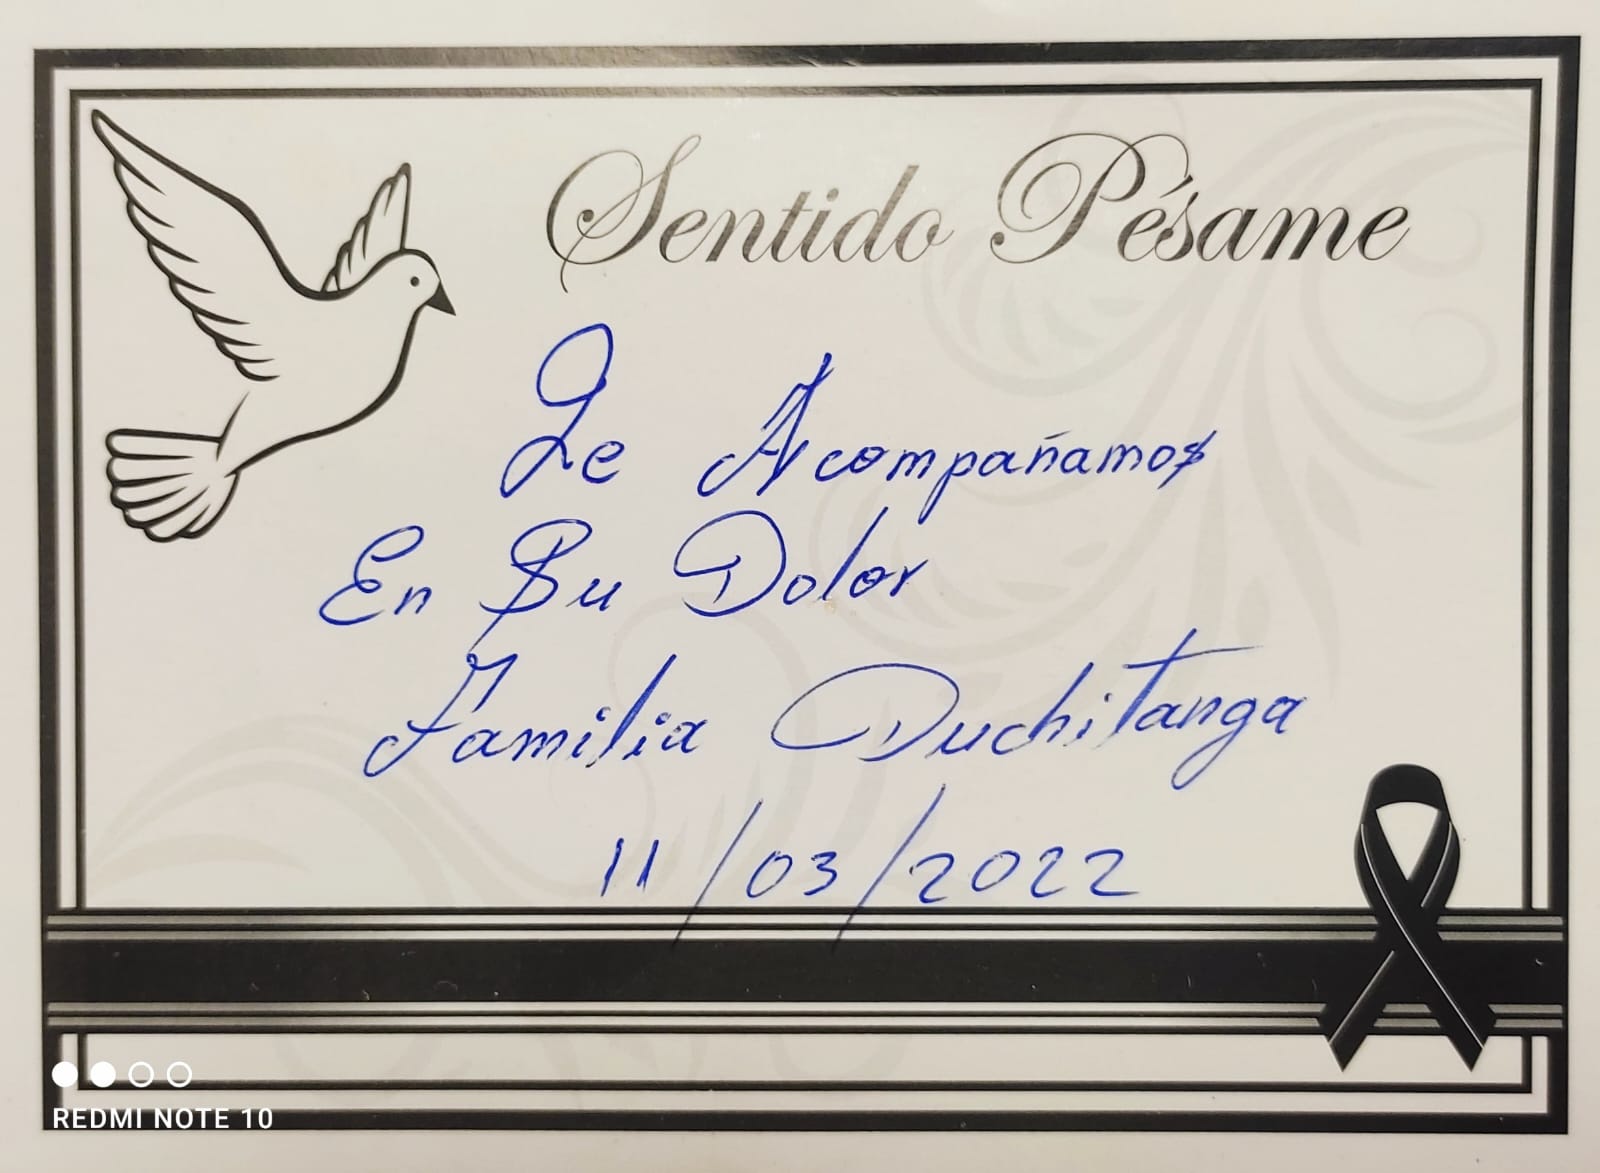 Sentido Pésame
Le Acompañamos
En Su Dolor
Familia Duchitanga
11/03/2022
REDMI NOTE 10